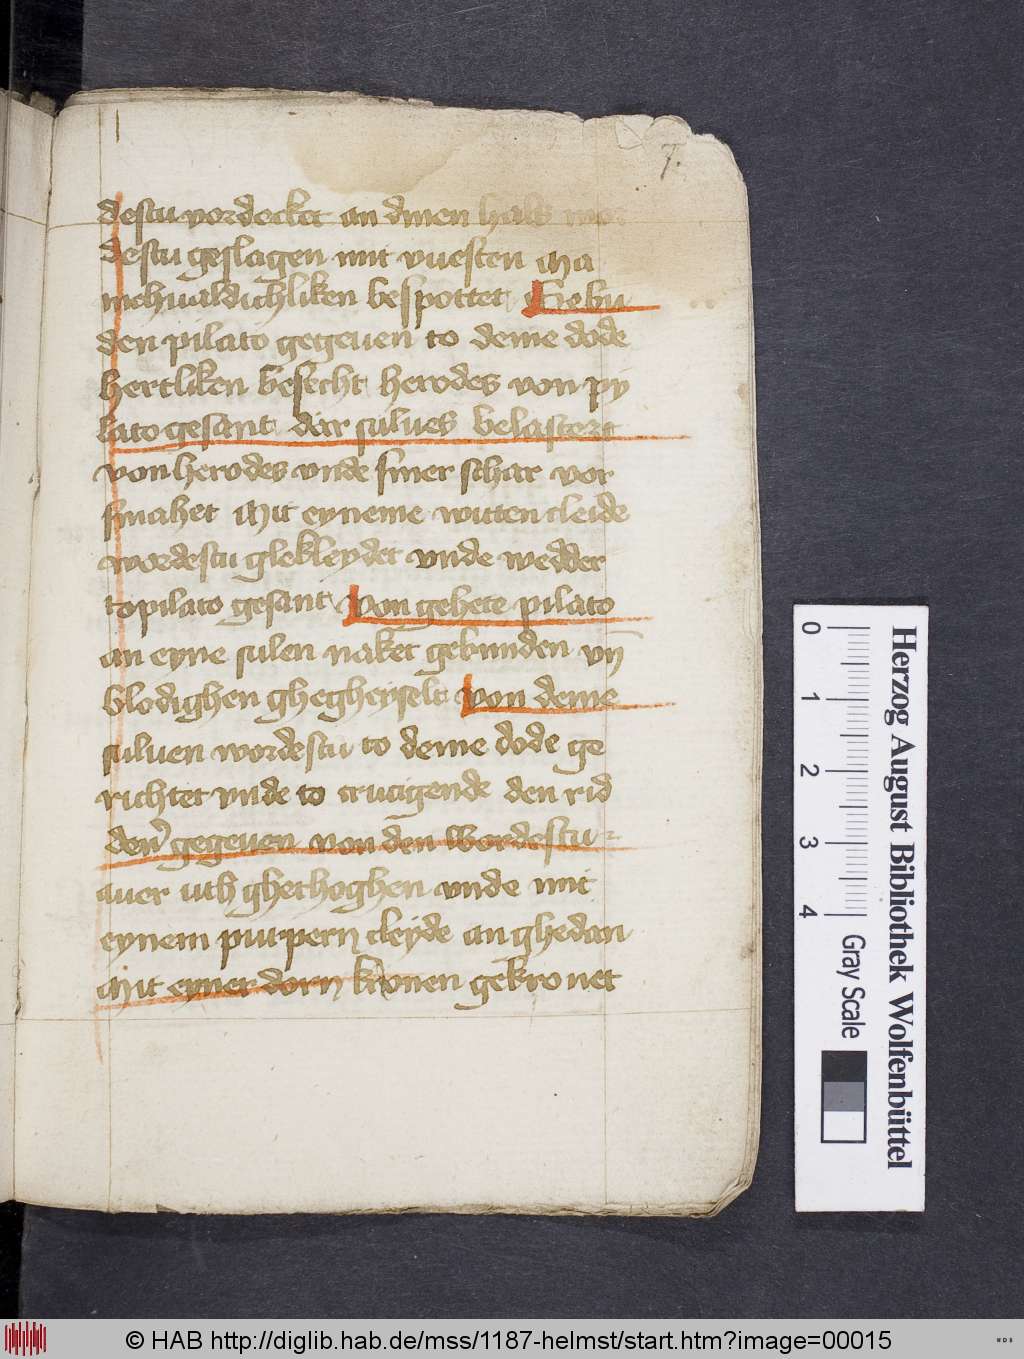 7.
destu vordecket an dinen hals wor
destu geslagen mit vuesten Ma
nichualdichliken bespottet Gebu
den pilato gegeuen to deme dode
hertliken besecht herodes von py
lato gesant dar sulues belastert
von herodes vnde siner schar vor
smahet Mit eyneme witten cleide
wordestu glekleydet vnde wedder
to pilato gesant Von gehete pilato
an eyne sulen naket gebunden vn̄
blodighen ghegheyselt von deme
suluen wordestu to deme dode ge
richtet vnde to crucigende den rid
den gegeuen von den Wordestu
auer uth ghethoghen vnde mit
eynem purpern cleyde an ghedan
Mit eyner dorn kronen gekronet
0 1 2 3 4
Gray Scale
Herzog August Bibliothek Wolfenbüttel
© HAB http://diglib.hab.de/mss/1187-helmst/start.htm?image=00015
WDB